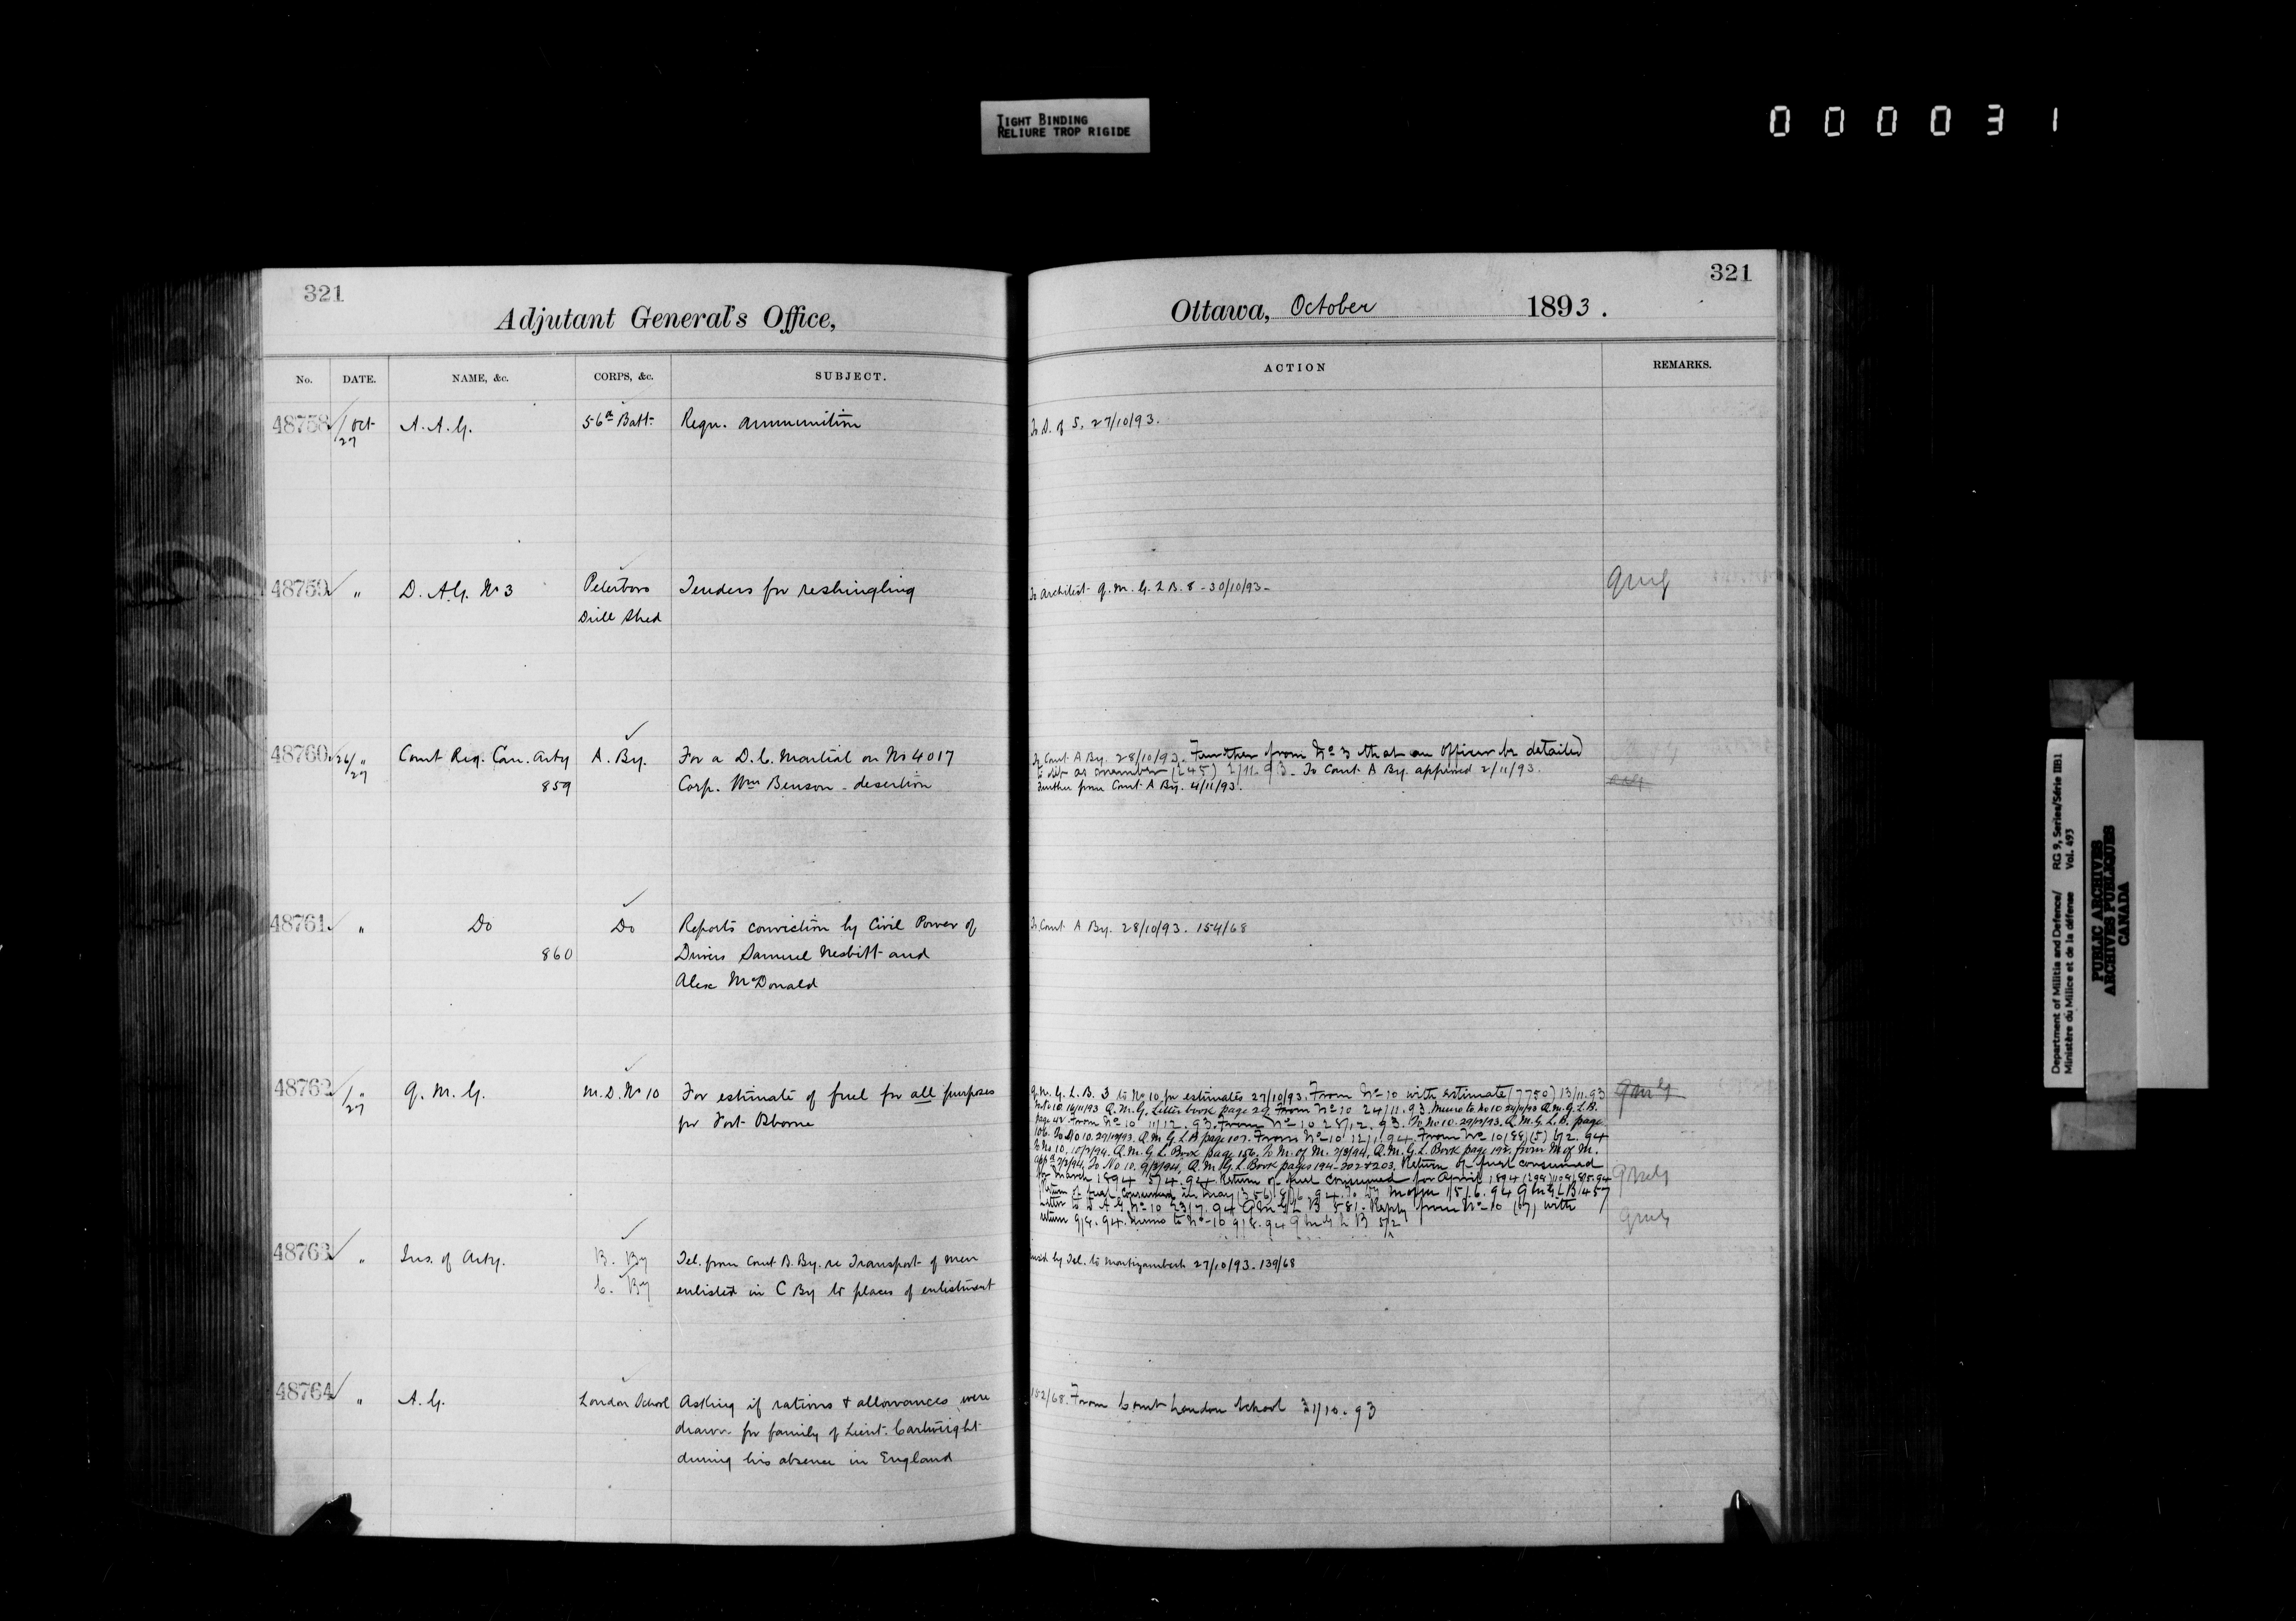 TIGHT BINDING
RELIURE TROP RIGIDE
000031
321
Adjutant General's Office,
No. DATE. NAME, &c. CORPS, &c. SUBJECT.
48758 1 Oct 27 A. A. G. 56th Batt. Requ. ammunition
48759 " D. A. G. No 3 Peterboro Tenders for reshingling
Drill Shed
48760 26/27 " Comt Reg. Can. Arty A. By. For a D. C. Martial on No 4017
859 Corp. Wm Benson - desertion
48761 " Do Do Reports conviction by Civil Power of
860 Drivers Samuel Nesbitt and
Alex McDonald
48762 1/27 " Q. M. G. M. D. No 10 For estimate of fuel for all purposes
for Fort Osborne
48763 " Ins. of Arty. B. By Tel. from Comt B. By. re Transport of men
C. By enlisted in C By to places of enlistment
48764 " A. G. London School Asking if rations & allowances were
drawn for family of Lieut. Cartwright
during his absence in England
321
Ottawa, October 1893.
ACTION REMARKS.
To D. of S. 27/10/93.
To Architect Q. M. G. L B. 8 - 30/10/93 - QMG
To Comt A By. 28/10/93. Further from No 3 that an Officer be detailed
to as member (245) 2/11.93. To Comt A By. approved 2/11/93.
Further from Comt A By. 4/11/93.
To Comt A By. 28/10/93. 154/68
Q. M. G. L. B. 3 to No 10 for estimates 27/10/93. From No 10 with estimate (7750) 13/11.93 QMG
No 10 16/11/93 Q. M. G. Letter book page 29. From No 10 24/11.93. Memo to No 10 Q. M. G. L B.
page 42. From No 10 11/12.93. From No 10 28/12.93. To No 10. 29/12/93. Q. M. G. L. B. page
106. To No 10. 29/12/93. Q. M. G L B page 107. From No 10 12/1.94. From No 10 (88)(5) 2.94
To No 10. Q. M. G L Book page 156. To M. of M. 7/3/94. Q. M. G. L Book page 192. from M of M.
appd 7/3/94. To No 10. 9/3/94. Q. M. G. L. Book pages 194-202 & 203. Return of fuel consumed
for March 1894 5/4.94. Return of fuel consumed for April 1894 QMG
Return of fuel consumed in May 94. 15/6.94 QMG L B 457
D A G No 10 23/7.94 QMG L B 581. Reply from No 10 with
return 9/8.94. Memo to No 10 9/8.94 QMG L B QMG
by Tel. to Montizambert 27/10/93. 139/68
182/68. From Comt London School 31/10.93
Department of Militia and Defence/ RG 9, Series/Série IIB1
Ministère du Milice et de la défense Vol. 493
PUBLIC ARCHIVES
ARCHIVES PUBLIQUES
CANADA